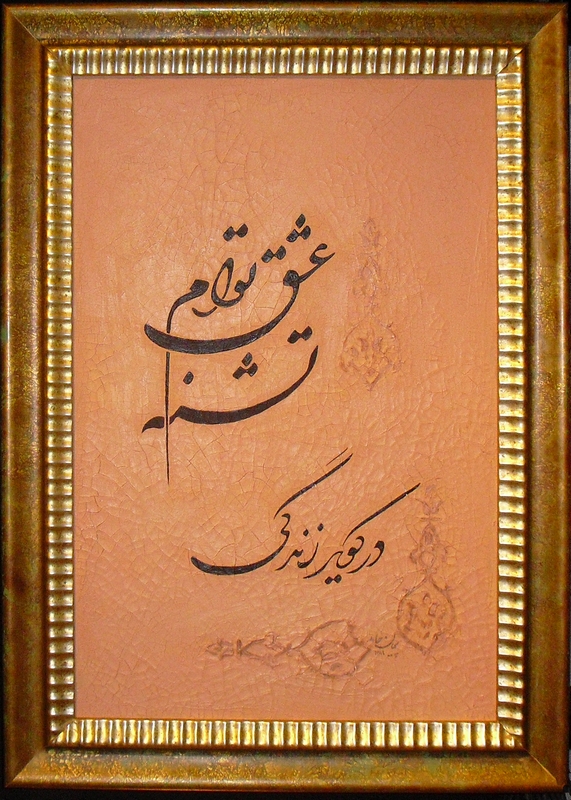 تشنه
عشق توام
در کویر زندگی